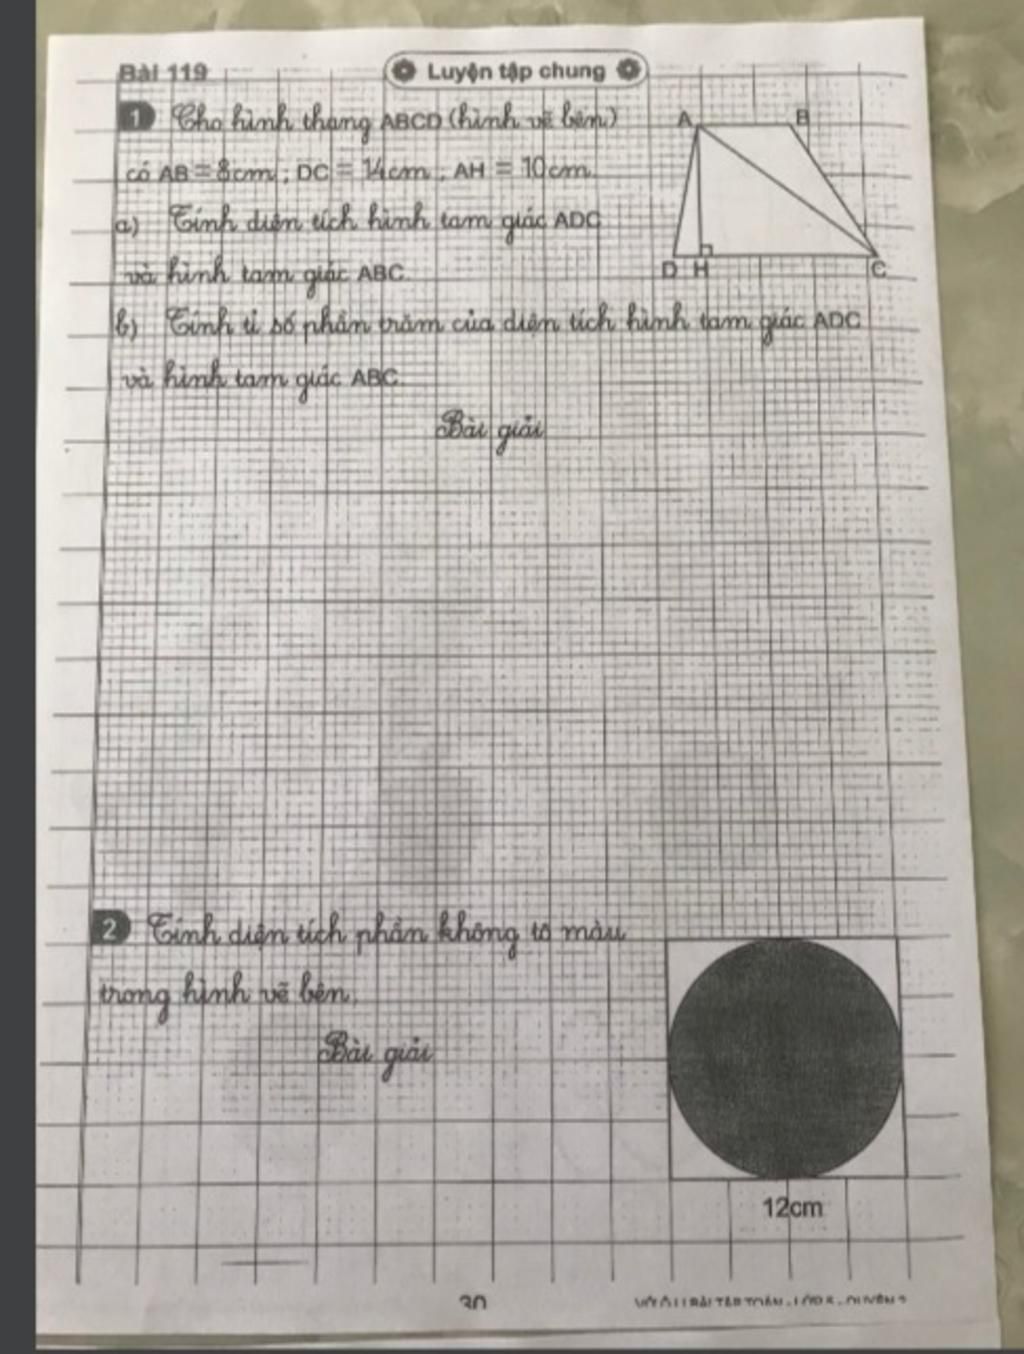 Bài 119
Luyện tập chung
1 Cho hình thang ABCD (hình vẽ bên)
có AB = 8cm; DC = 14cm; AH = 10cm.
a) Tính diện tích hình tam giác ADC
và hình tam giác ABC.
b) Tính tỉ số phần trăm của diện tích hình tam giác ADC
và hình tam giác ABC.
Bài giải
A B
D H C
2 Tính diện tích phần không tô màu
trong hình vẽ bên.
Bài giải
12cm
30